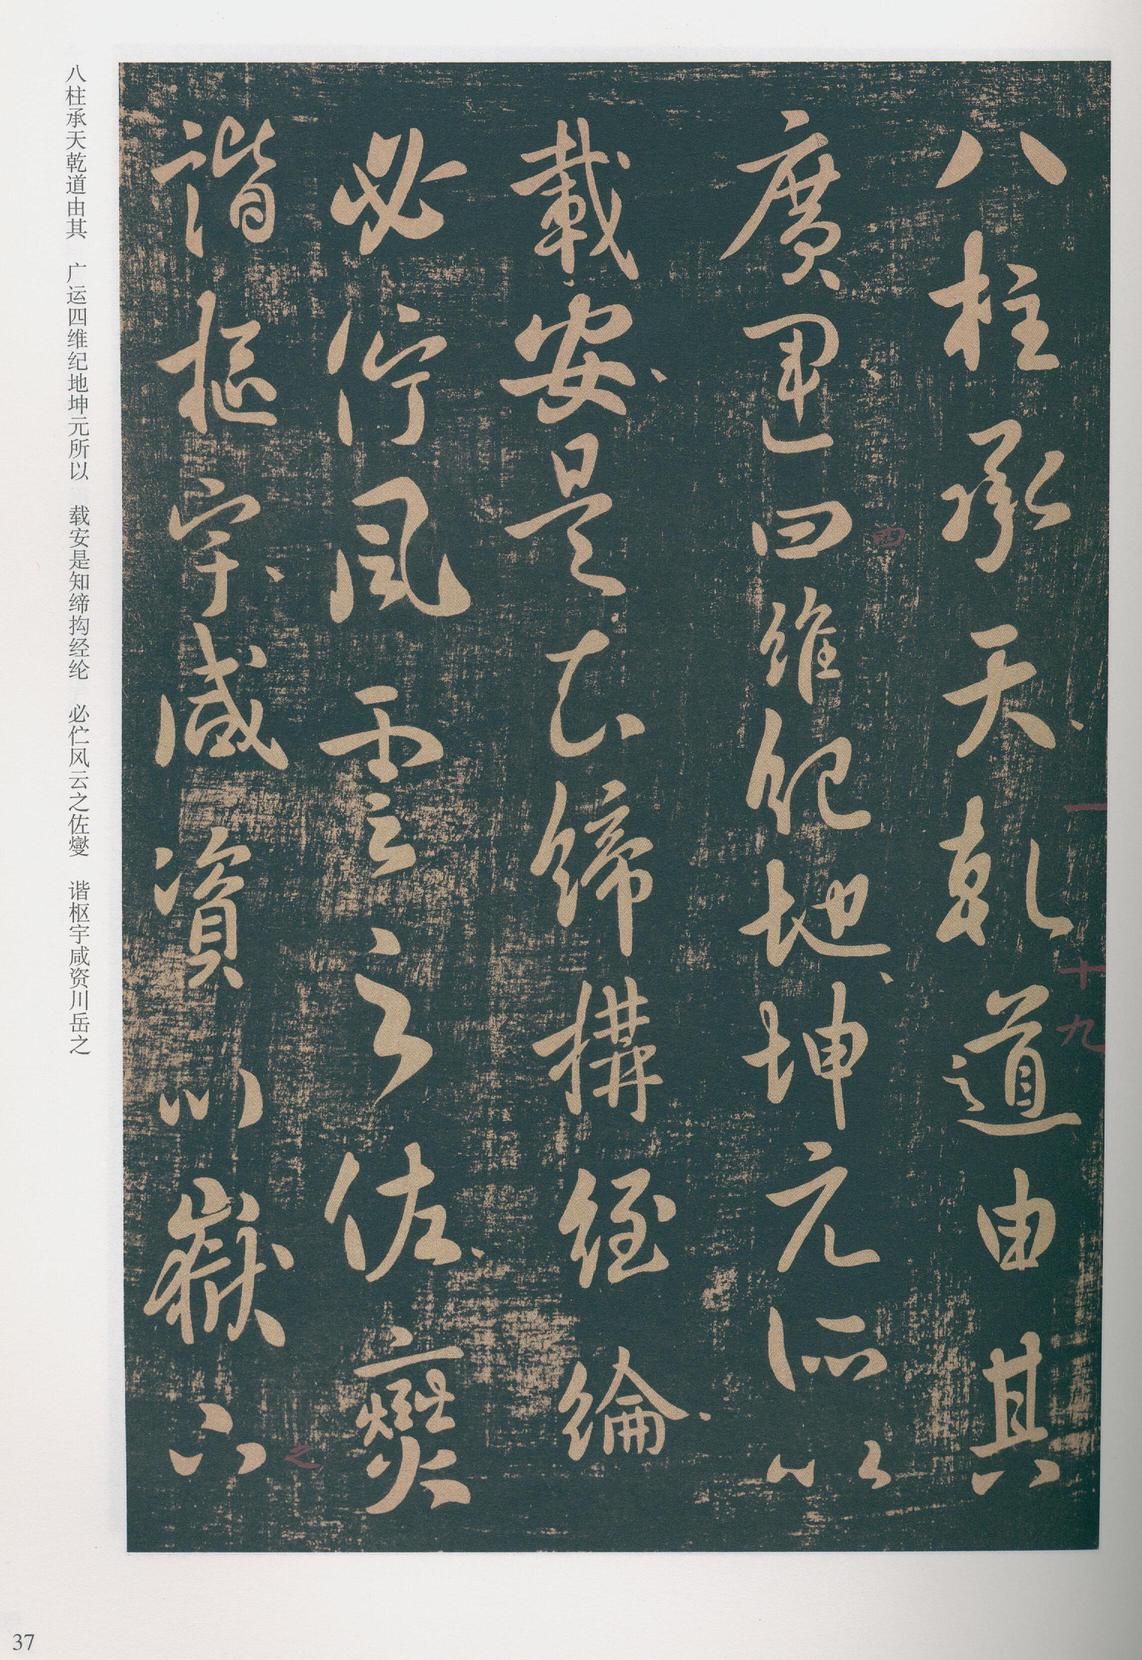 八柱承天乾道由其
廣運四維紀地坤元所以
載安是知締構經綸
必佇風雲之佐燮
諧樞宇咸資川嶽之
四
一
十九
之
八柱承天乾道由其　广运四维纪地坤元所以　载安是知缔构经纶　必伫风云之佐燮　谐枢宇咸资川岳之
37